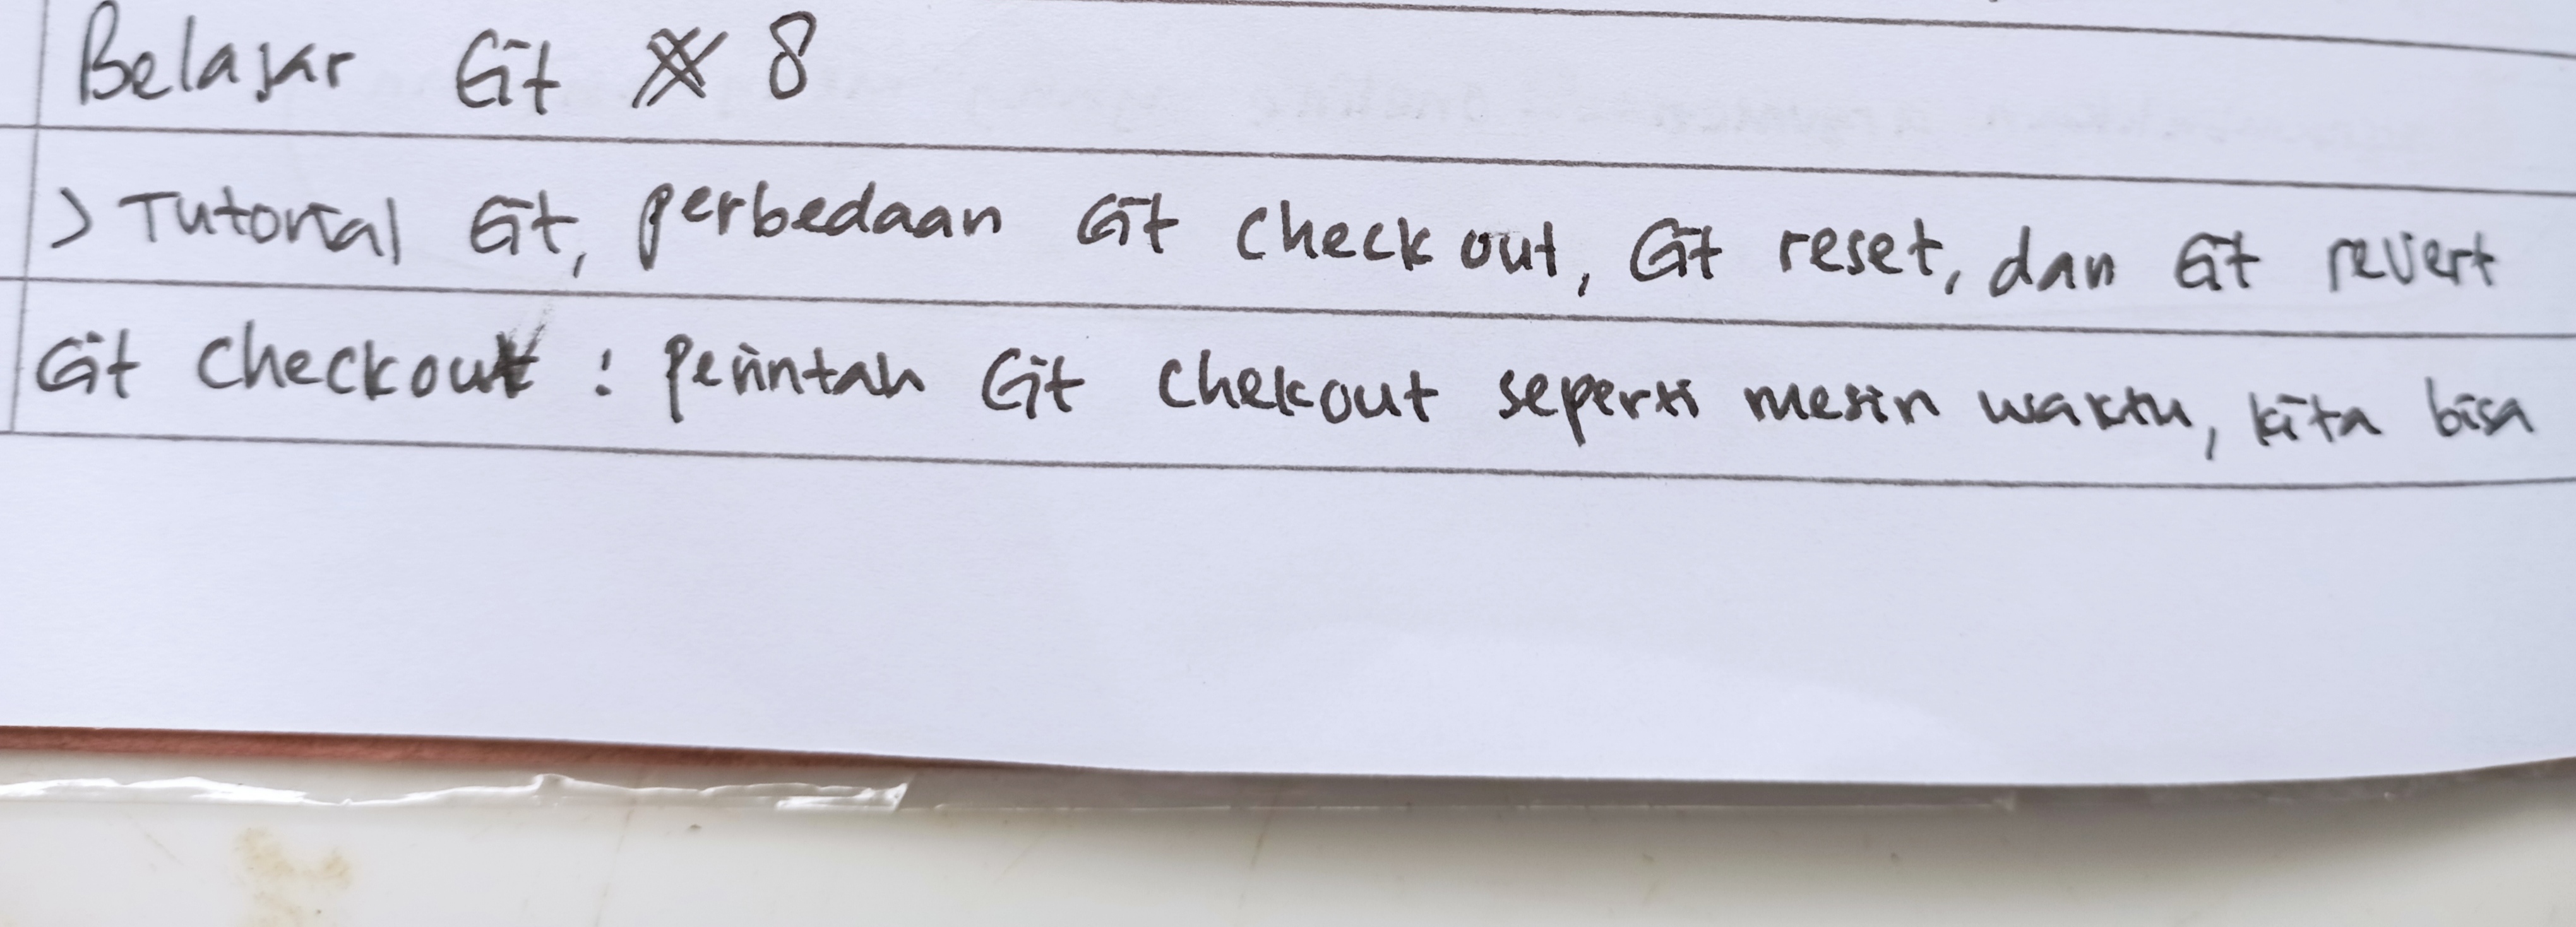 Belajar Git # 8
> Tutorial Git, perbedaan Git checkout, Git reset, dan Git revert
Git checkout : perintah Git chekout seperti mesin waktu, kita bisa